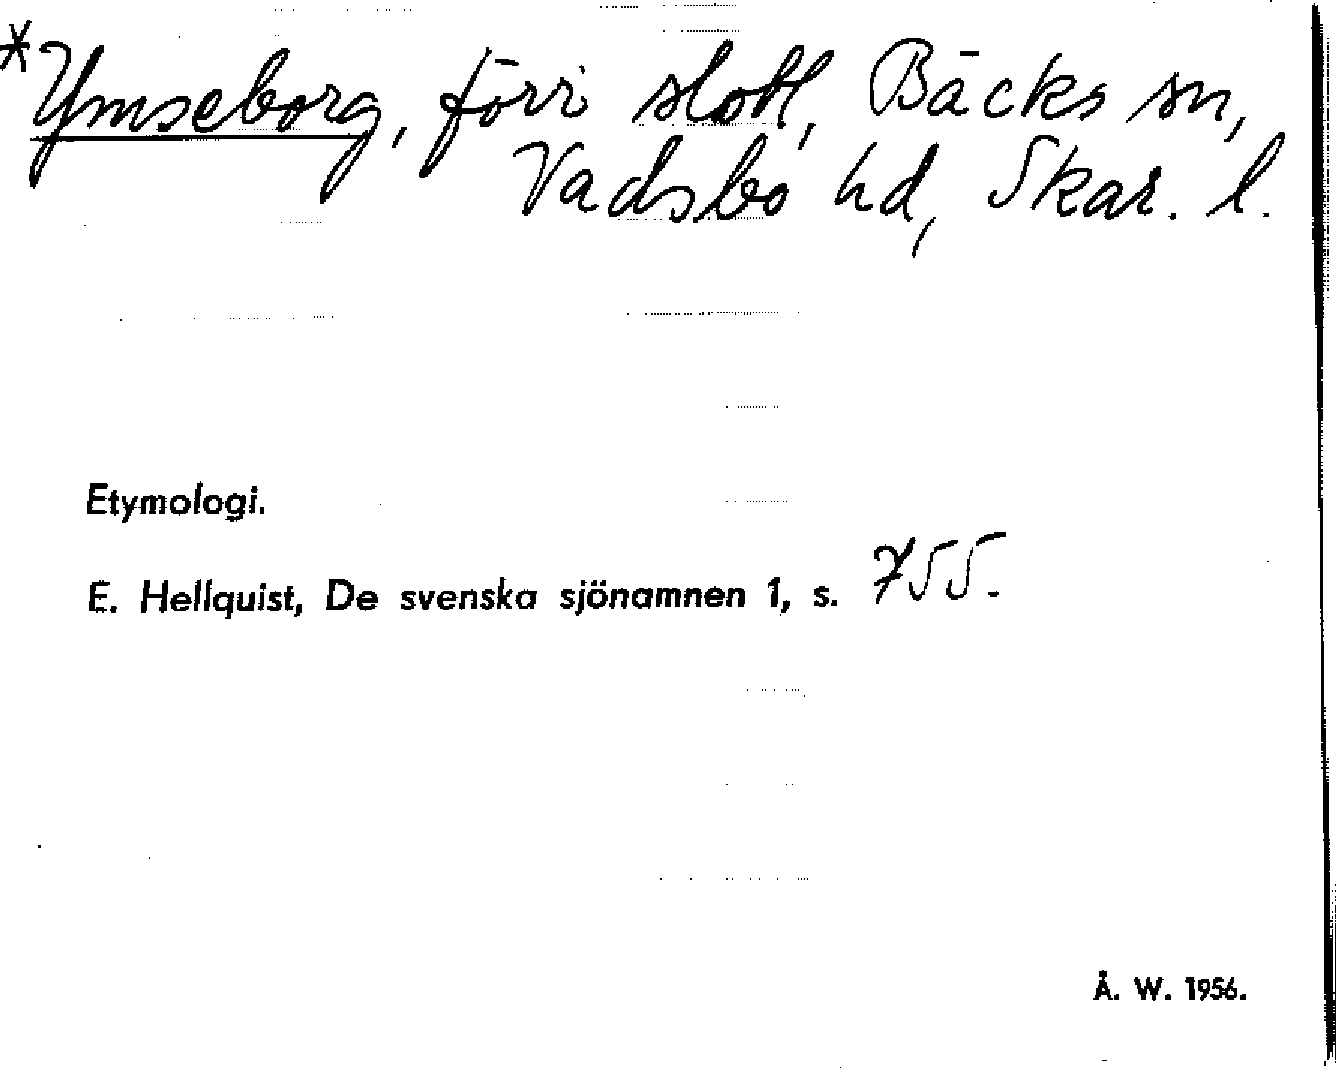 *Ymseborg, förr slott, Bäcks sn,
Vadsbo hd, Skar. l.
Etymologi.
E. Hellquist, De svenska sjönamnen 1, s. 755.
Å. W. 1956.